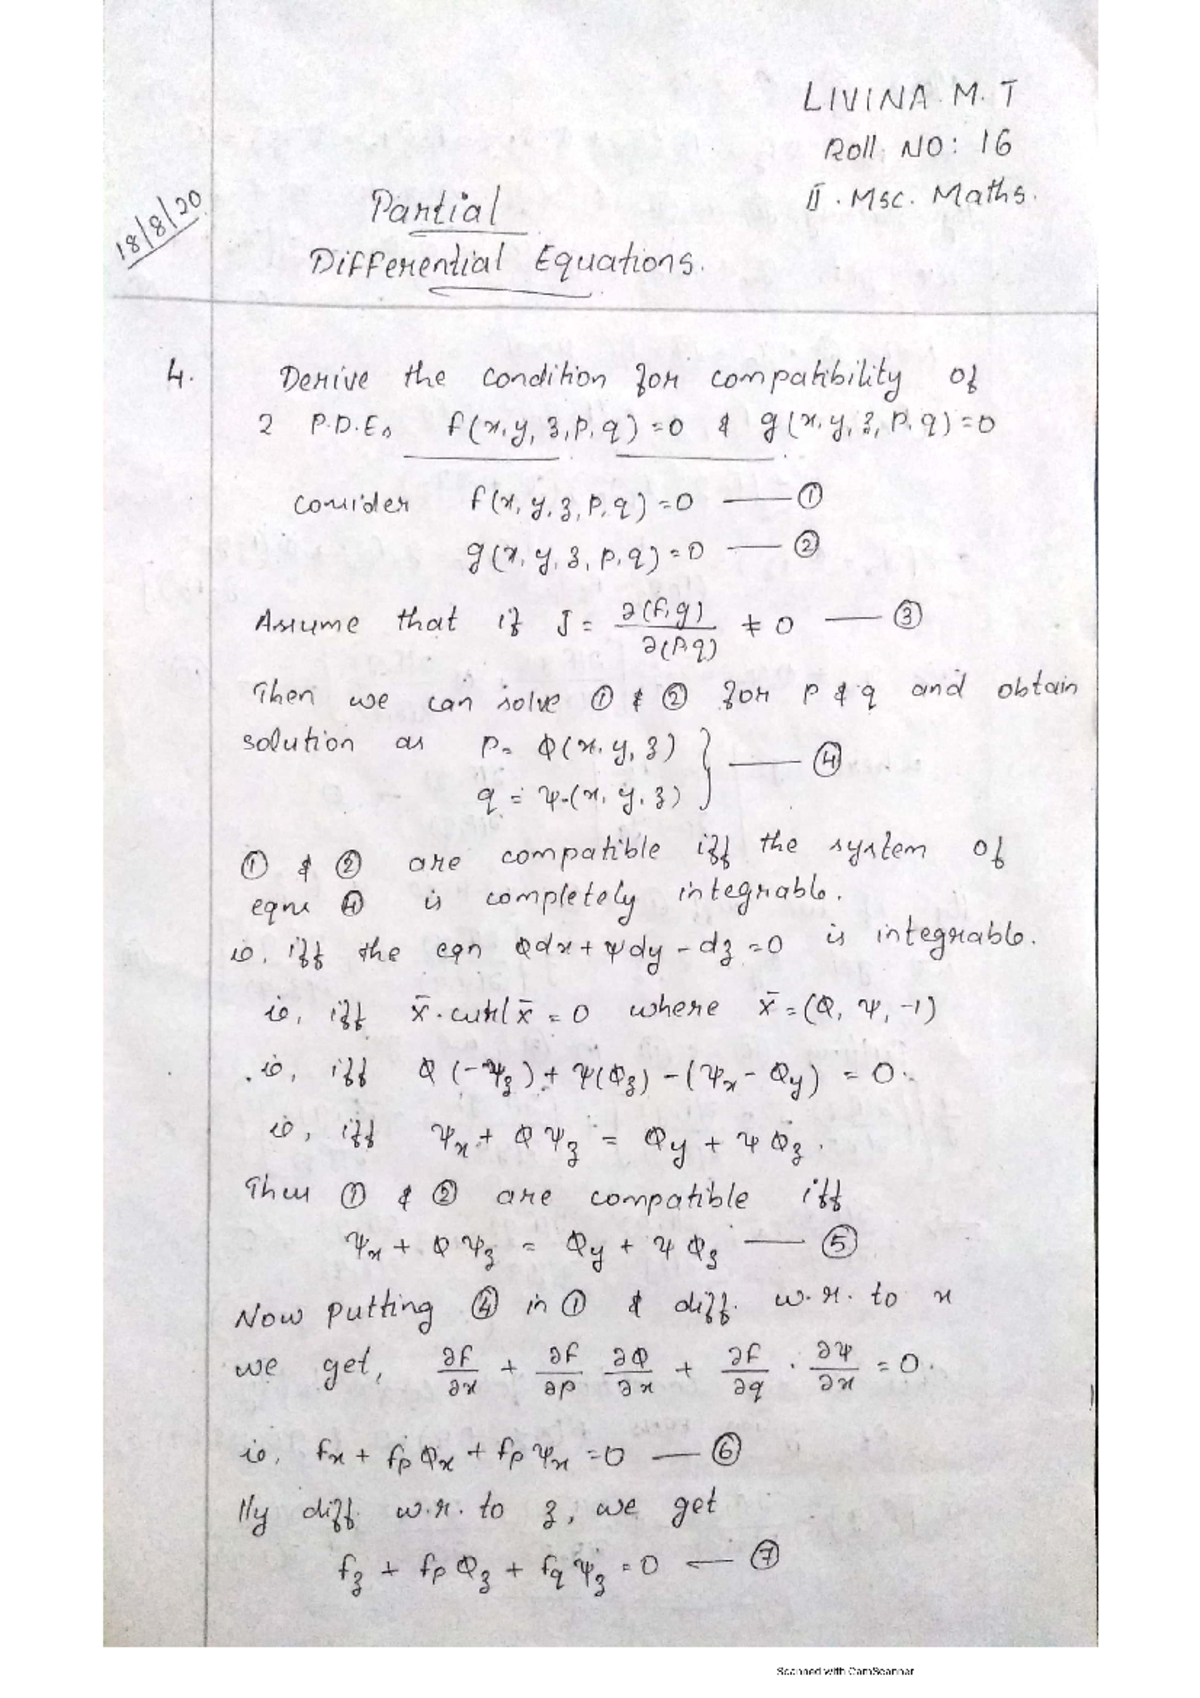 LIVINA M. T
Roll NO: 16
II. Msc. Maths.
18/8/20
Partial
Differential Equations.
4. Derive the condition for compatibility of
2 P.D.Es f(x, y, z, p, q) = 0 & g(x, y, z, p, q) = 0
Consider f(x, y, z, p, q) = 0 —— ①
g(x, y, z, p, q) = 0 —— ②
Assume that if J = ∂(f, g)/∂(p, q) ≠ 0 —— ③
Then we can solve ① & ② for p & q and obtain
solution as p = ϕ(x, y, z) } —— ④
q = ψ(x, y, z)
① & ② are compatible iff the system of
eqns ④ is completely integrable.
ie, iff the eqn ϕdx + ψdy - dz = 0 is integrable.
ie, iff x̄ · curl x̄ = 0 where x̄ = (ϕ, ψ, -1)
ie, iff ϕ(-ψz) + ψ(ϕz) - (ψx - ϕy) = 0.
ie, iff ψx + ϕψz = ϕy + ψϕz.
Thus ① & ② are compatible iff
ψx + ϕψz = ϕy + ψϕz —— ⑤
Now putting ④ in ① & diff. w.r. to x
we get, ∂f/∂x + ∂f/∂p ∂ϕ/∂x + ∂f/∂q · ∂ψ/∂x = 0.
ie, fx + fp ϕx + fp ψx = 0 — ⑥
lly diff. w.r. to z, we get
fz + fp ϕz + fq ψz = 0 — ⑦
Scanned with CamScanner